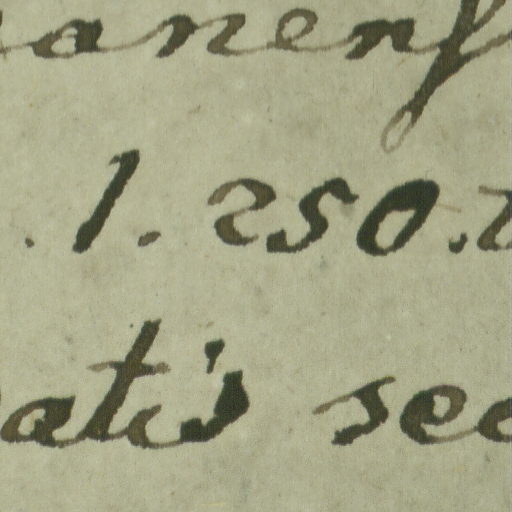 anenſ
. 1. 250. t
atis sec